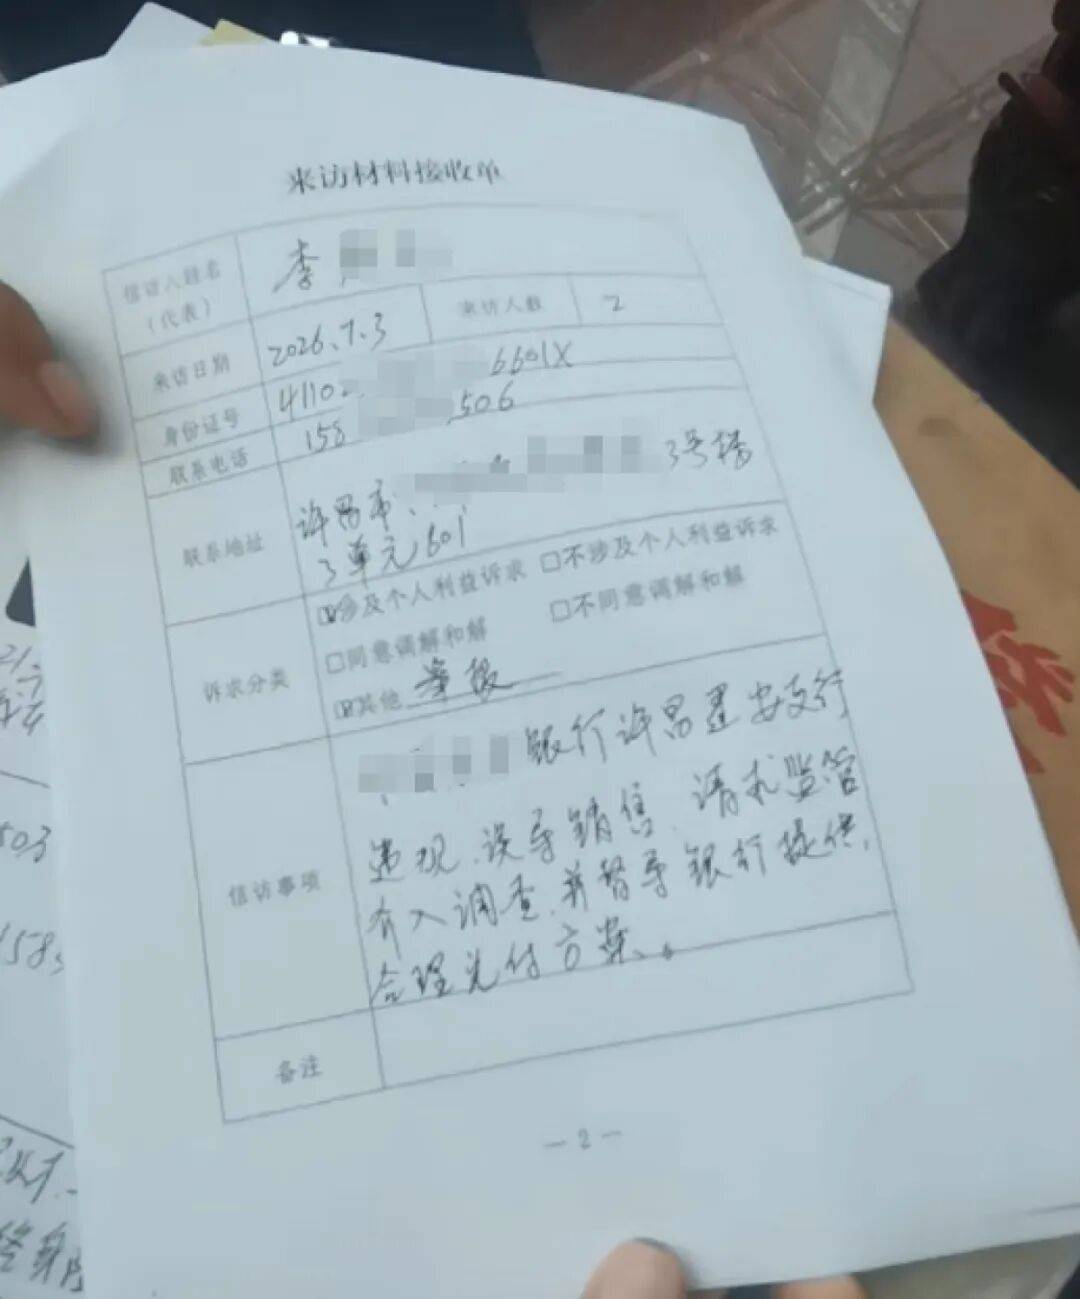 来访材料接收单
信访人姓名
（代表）
李
来访日期
2026.7.3
来访人数
2
身份证号
4110
6601X
联系电话
158
506
联系地址
许昌市
3号楼
3单元601
诉求分类
☑涉及个人利益诉求 □不涉及个人利益诉求
□同意调解和解 □不同意调解和解
☑其他 举报
信访事项
银行许昌建安支行
违规、误导销售、请求监管
介入调查，并督导银行提供，
合理兑付方案。
备注
— 2 —
503